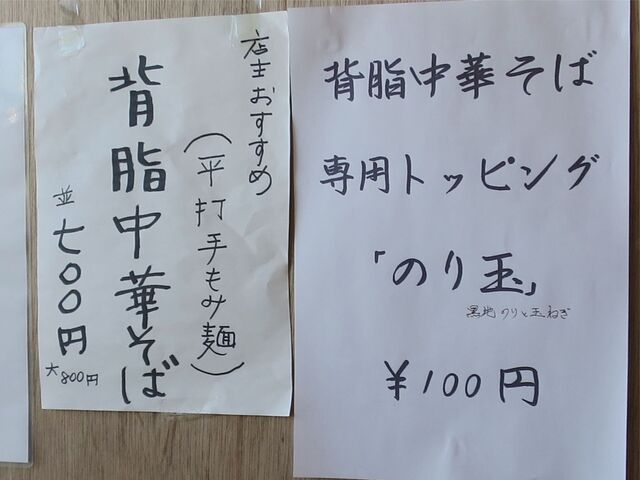 店主おすすめ
(平打手もみ麺)
背脂中華そば
並 七〇〇円
大 800円
背脂中華そば
専用トッピング
「のり玉」
黒地のりと玉ねぎ
¥100円